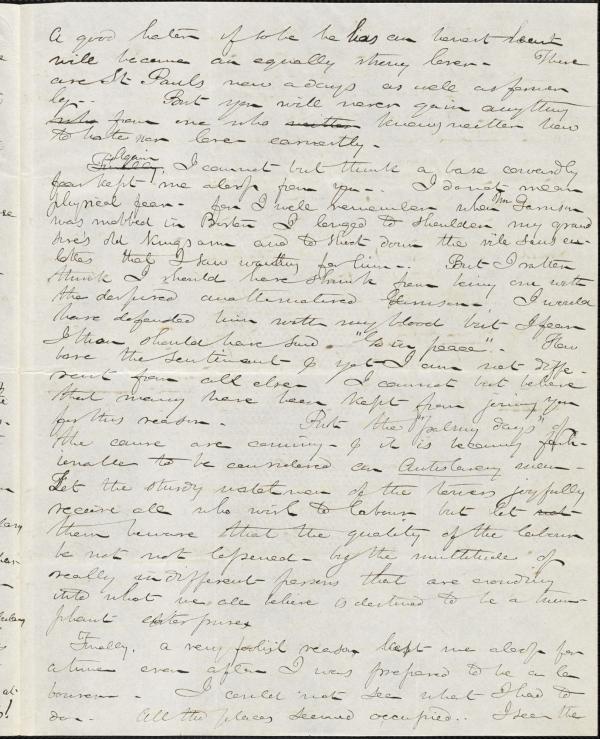 A good hater if to be he has an honest heart
will become an equally strong lover - There
are St Pauls now a days as well as former
ly - . But you will never gain anything
from one who knows neither how
to hate nor love earnestly -
Again, I cannot but think a base cowardly
fear kept me aloof from you - . I do not mean
physical fear - for I well remember when Mr Garrison
was mobbed in Boston I longed to shoulder my grand
sire's old Kings arm and to shoot down the vile sans cu-
lottes that I saw waiting for him - . But I rather
think I should have shrunk from being one with
the despised anathematized Garrison . I would
have defended him with my blood but I fear
I then should have said "Go in peace" . How
base the sentiment & yet I am not diffe-
rent from all else I cannot but believe
that many have been kept from joining you
for this reason - But the "palmy days" of
the cause are coming - & it is becoming fash-
ionable to be considered an Antislavery man -
Let the sturdy watchmen of the towers joyfully
receive all who wish to labour but let
them beware that the quality of the labour
be not not lessened - by the multitude of
really indifferent persons that are crowding
into what we all believe is destined to be a trium-
phant enterprise
Finally, a very foolish reason kept me aloof for
a time even after I was prepared to be a la
bourer - . I could not see what I had to
do - . All the places seemed occupied . . I seen the